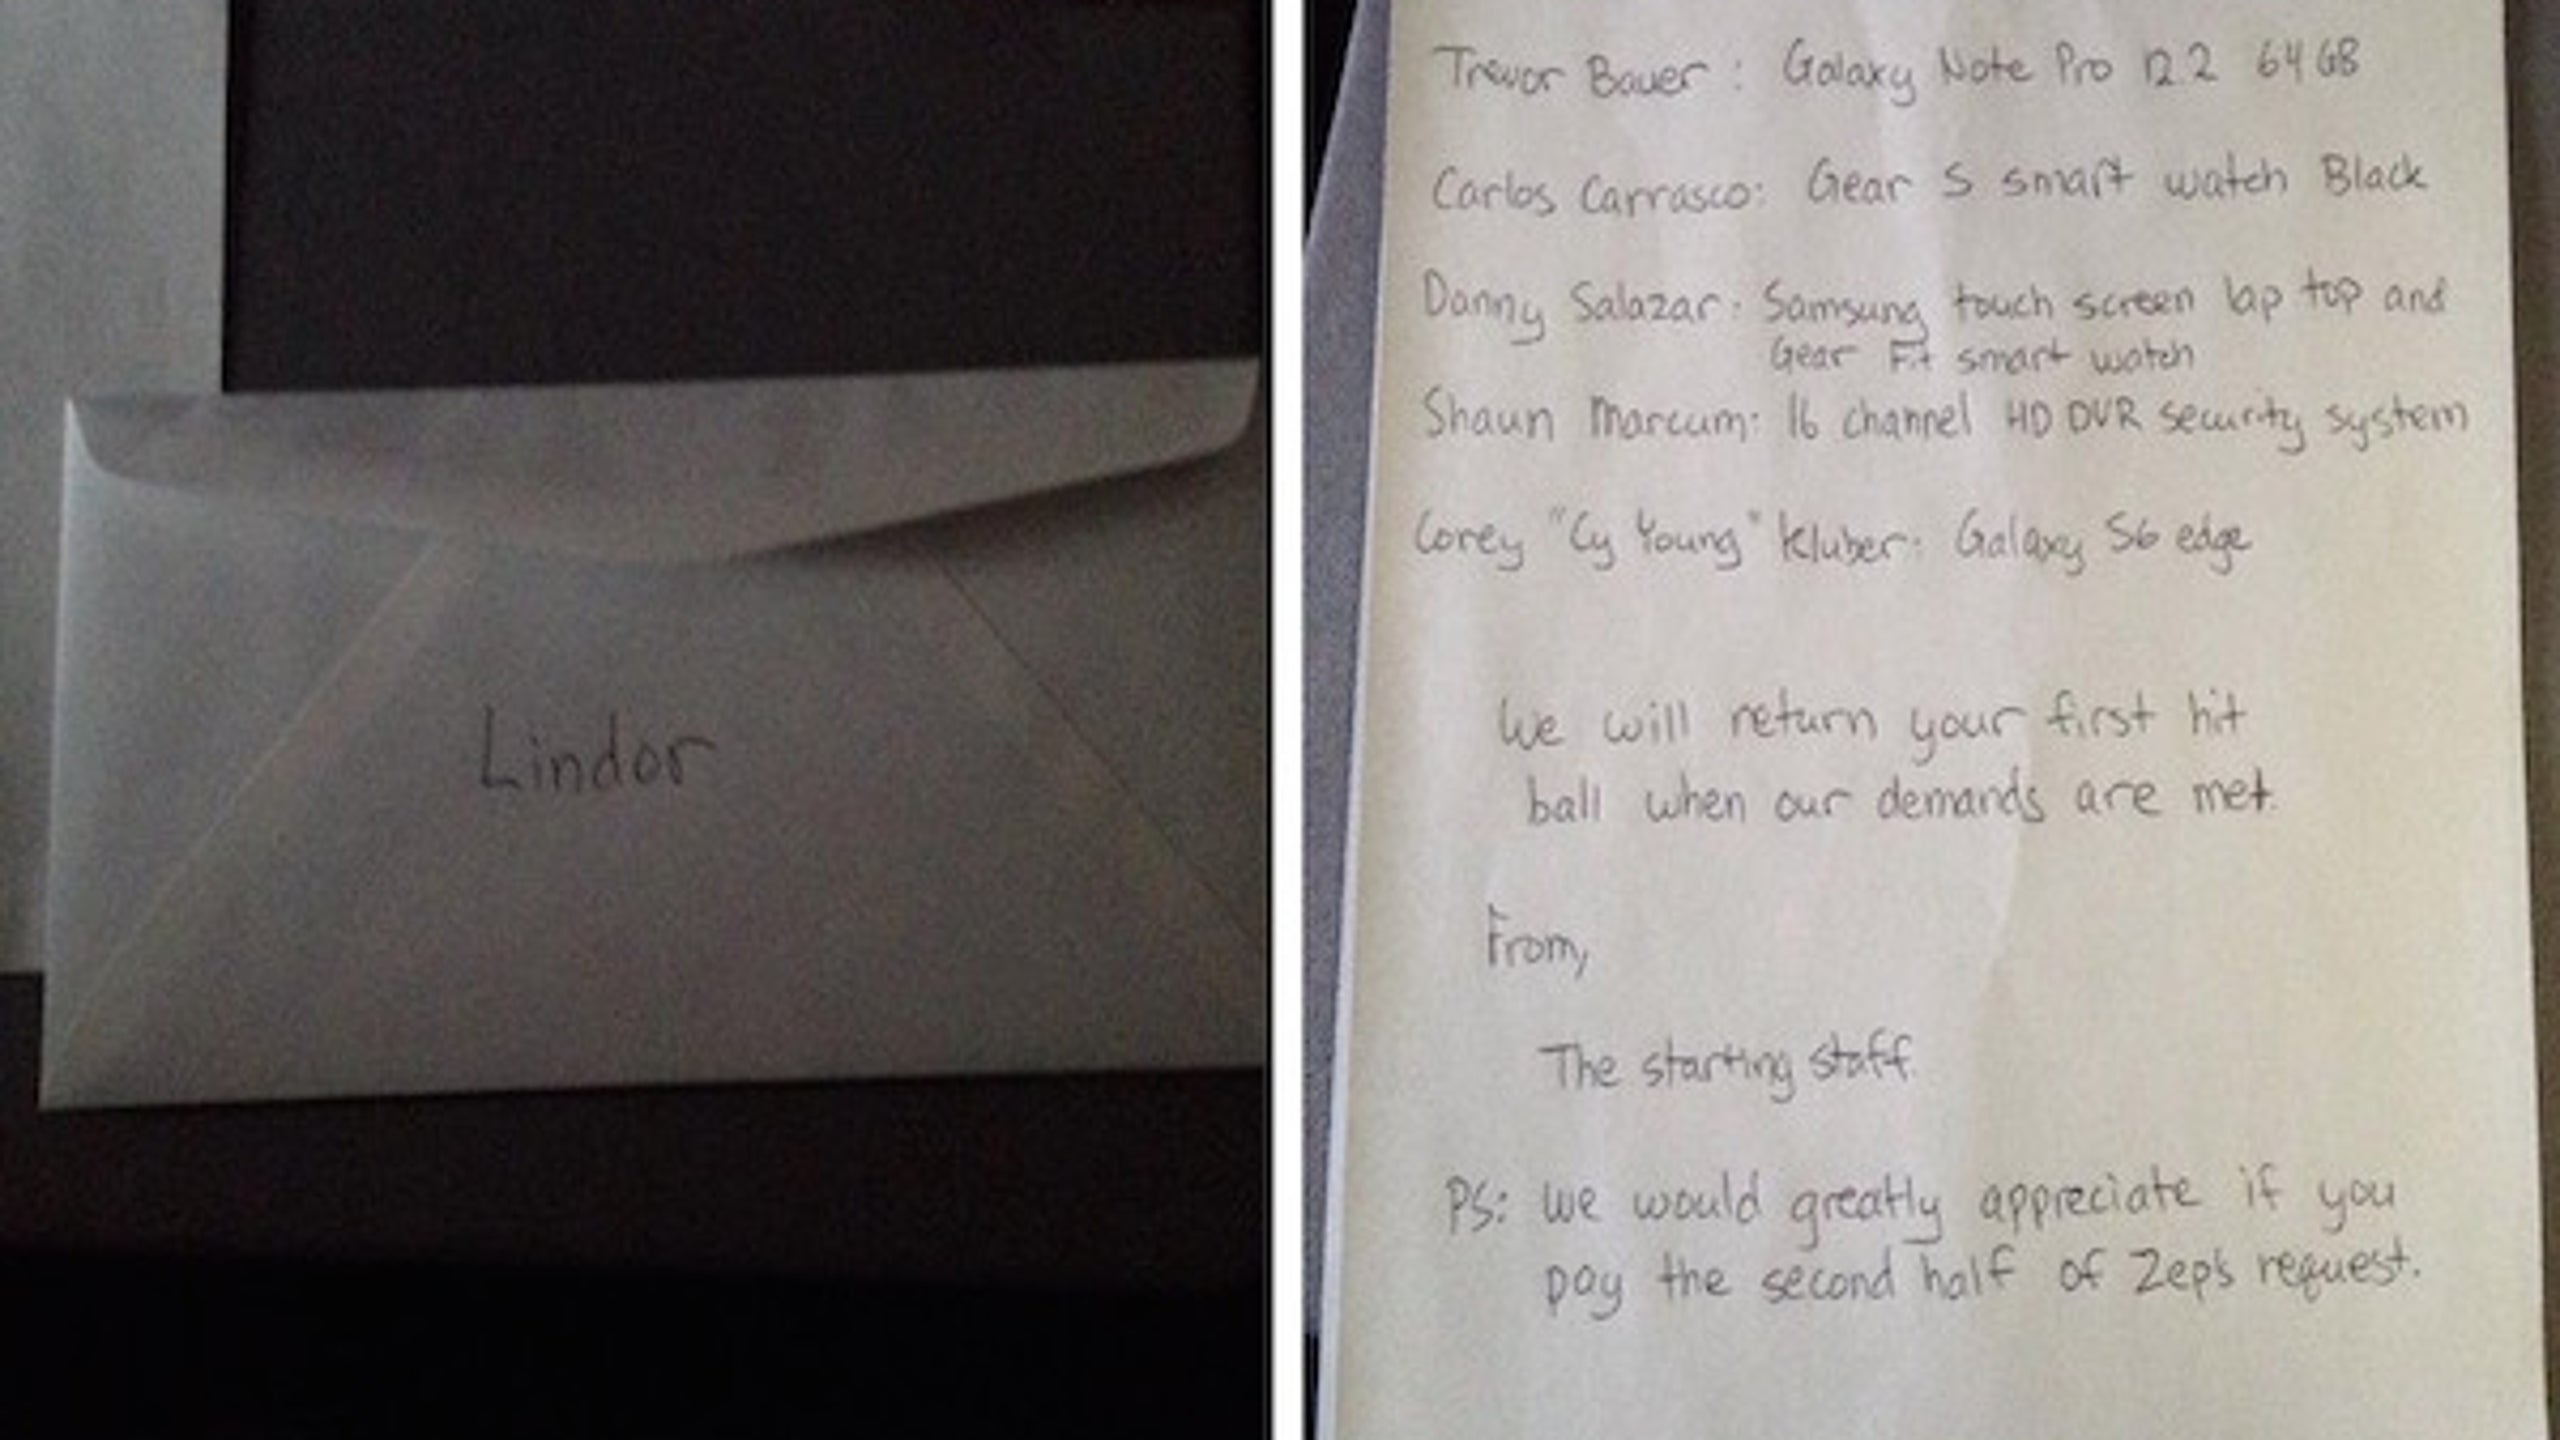 Lindor
Trevor Bauer: Galaxy Note Pro 12.2 64 GB
Carlos Carrasco: Gear S smart watch Black
Danny Salazar: Samsung touch screen lap top and
Gear Fit smart watch
Shaun Marcum: 16 channel HD DVR security system
Corey "Cy Young" Kluber: Galaxy S6 edge
We will return your first hit
ball when our demands are met.
From,
The starting staff
PS: We would greatly appreciate if you
pay the second half of Zep's request.